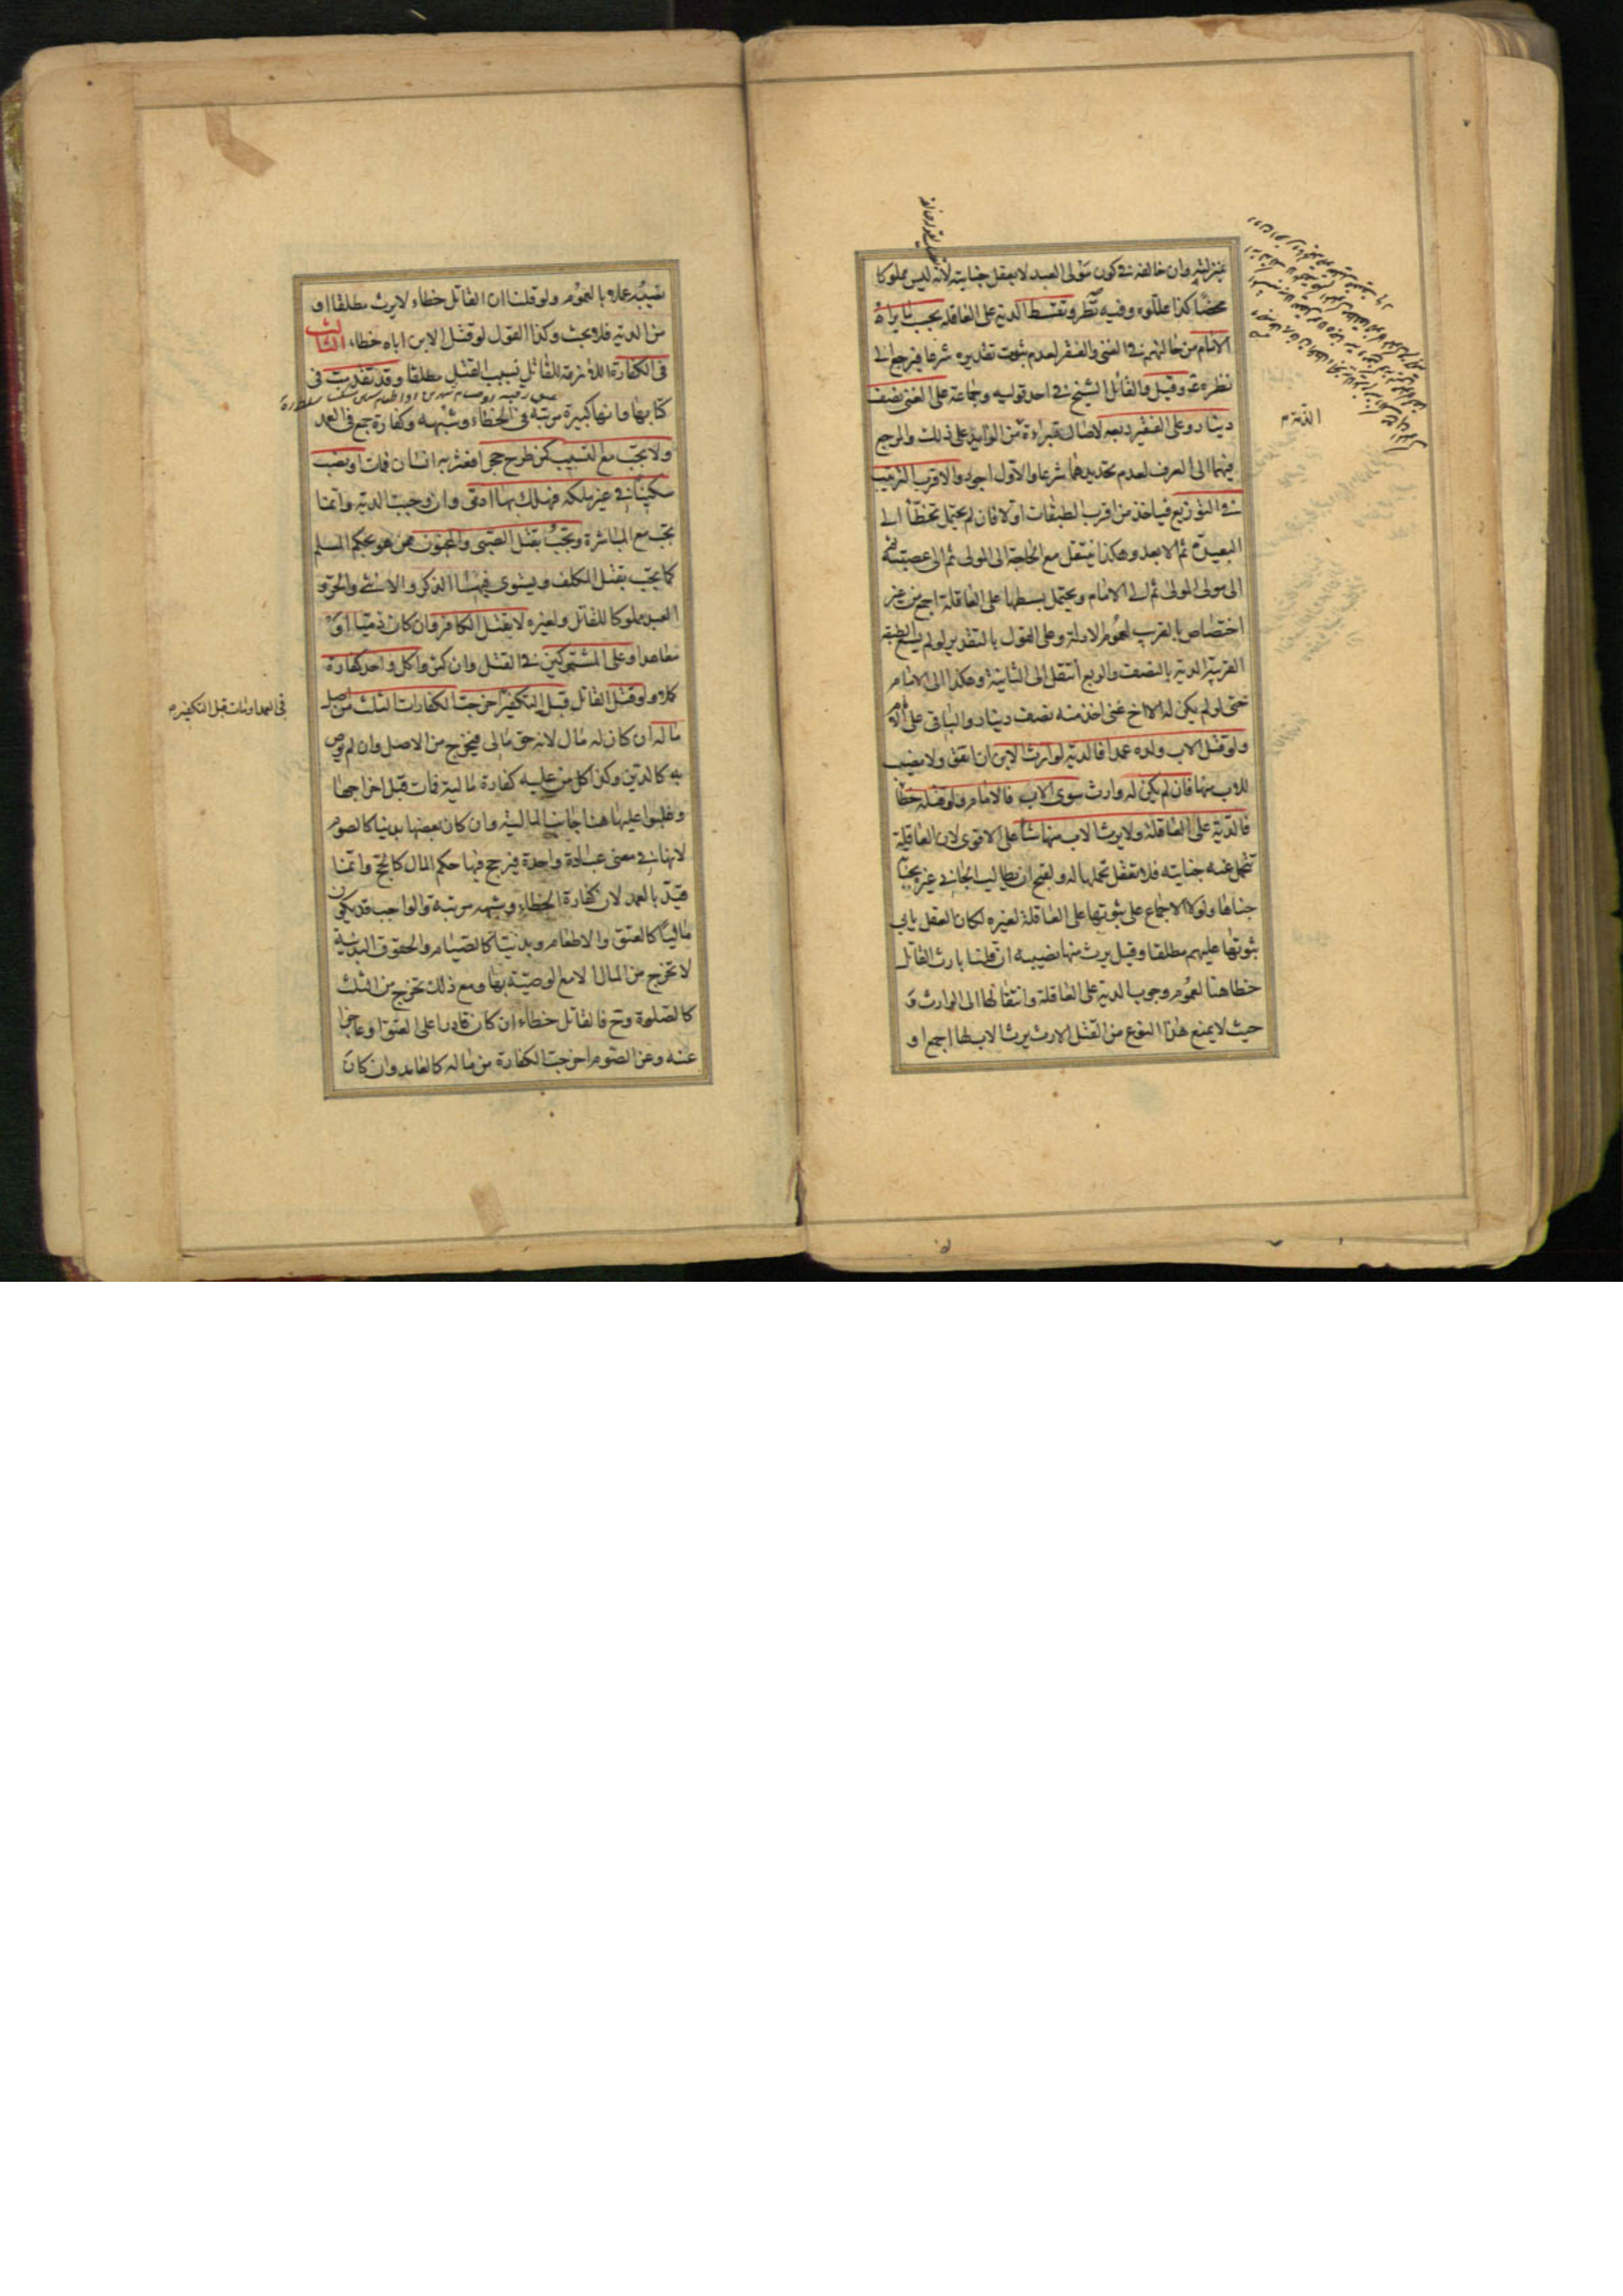 بمنزلته وان خالفه في كون مولى العبد لا يعقل جنايته لانه ليس مملوكا
محضا كذا عللوه وفيه نظر وتقسط الدية على العاقلة بحسب ما يراه
الامام من حالتهم في الغنى والفقر لعدم ثبوت تقديره شرعا فيرجع الى
نظره وقيل والقائل الشيخ في احد قوليه وجماعة على الغني نصف
دينار وعلى الفقير ربعه لاصالة براءة من الزايد على ذلك والمرجع
الذمة م
فيهما الى العرف لعدم تحديدهما شرعا والاول اجود والاقرب الترتيب
في التوزيع فياخذ من اقرب الطبقات اولا فان لم يحتمل تخطا الى
البعيدة ثم الابعد وهكذا ينتقل مع الحاجة الى المولى ثم الى عصبته ثم
الى مولى المولى ثم الى الامام ويحتمل بسطها على العاقلة اجمع من غير
اختصاص بالقرب لعموم الادلة وعلى القول بالتقدير لو لم يسع الطبقة
القريبة الدية بالنصف والربع انتقل الى الثانية وهكذا الى الامام
حتى لو لم يكن له الا اخ غني اخذ منه نصف دينار والباقي على الامام
ولو قتل الاب ولده عمدا فالدية لوارث الابن ان اتفق ولا نصيب
للاب منها فان لم يكن له وارث سوى الاب فالامام ولو قتله خطأ
فالدية على العاقلة ولا يرث الاب منها شيئا على الاقوى لان العاقلة
تتحمل عنه جنايته فلا تعقل تحملها له ولقبح ان يطالب الجاني غيره بجناية
جناها ولولا الاجماع على ثبوتها على العاقلة لغيره لكان العقل يابى
ثبوتها عليهم مطلقا وقيل يرث منها نصيبه ان قلنا بارث القاتل
خطا هنا لعموم وجوب الدية على العاقلة وانتقالها الى الوارث و
حيث لا يمنع هذا النوع من القتل الارث يرث الاب لها اجمع او
نصيبه عملا بالعموم ولو قلنا ان القاتل خطاء لا يرث مطلقا او
من الدية فلا بحث وكذا القول لو قتل الابن اباه خطاء الثالث
في الكفارة اللازمة للقاتل بسبب القتل مطلقا وقد تقدمت في
كتابها وانها كبيرة مرتبة في الخطاء وشبهه وكفارة جمع في العمد
ولا تجب مع التسبيب كمن طرح حجرا فعثر به انسان فمات او نصب
سكينا في غير ملكه فهلك بها ادمى وان وجبت الدية وانما
تجب مع المباشرة وتجب بقتل الصبي والمجنون ممن هو بحكم المسلم
كما تجب بقتل المكلف ويستوى فيهما الذكر والانثى والحر و
العبد مملوكا للقاتل ولغيره لا بقتل الكافر وان كان ذميا او
معاهدا وعلى المشتركين في القتل وان كثروا كل واحد كفارة
كملا ولو قتل القاتل قبل التكفير اخرجت الكفارات الثلث من اصل
في العمد او مات قبل التكفير م
ماله ان كان له مال لانه حق مالى فيخرج من الاصل وان لم يوص
به كالدين وكذا كل من عليه كفارة مالية فمات قبل اخراجها
وغلبوا عليها هنا جانب المالية وان كان بعضها بدنيا كالصوم
لانها في معنى عبادة واحدة فيرجح فيها حكم المال كالحج وانما
قيد بالعمد لان كفارة الخطاء وشبهه مرتبة والواجب قد يكون
ماليا كالعتق والاطعام وبدنيا كالصيام والحقوق البدنية
لا تخرج من المال الا مع الوصية بها ومع ذلك تخرج من الثلث
كالصلوة وح فالقاتل خطاء ان كان قادرا على العتق او عاجزا
عنه وعن الصوم اخرجت الكفارة من ماله كالعامد وان كان